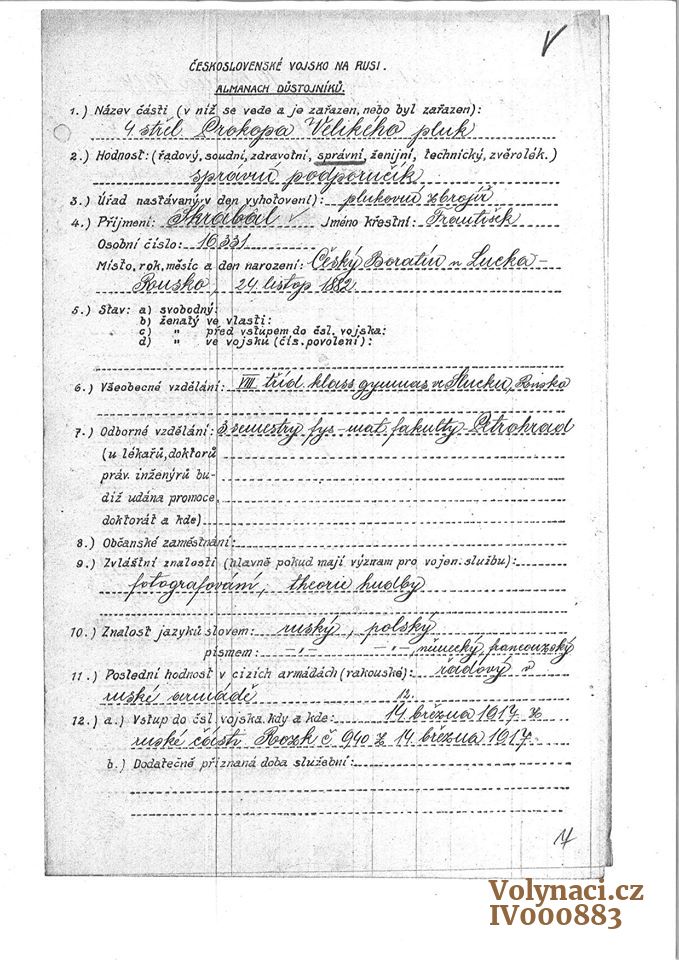 V
ČESKOSLOVENSKÉ VOJSKO NA RUSI.
ALMANACH DŮSTOJNÍKŮ.
1.) Název části (v níž se vede a je zařazen, nebo byl zařazen):
4 střel. Prokopa Velikého pluk
2.) Hodnost: (řadový, soudní, zdravotní, správní, ženijní, technický, zvěrolék.)
správní podporučík
3.) Úřad nastávaný v den vyhotovení): plukovní zbrojíř
4.) Příjmení: Skrabal Jméno křestní: František
Osobní číslo: 16331
Místo, rok, měsíc a den narození: Český Boratín u Lucka -
Rusko, 24 listop 1892
5.) Stav: a) svobodný:
b) ženatý ve vlasti:
c) " před vstupem do čsl. vojska:
d) " ve vojsku (čís. povolení):
6.) Všeobecné vzdělání: VIII tříd. klass gymnas v Slucku, Rusko
7.) Odborné vzdělání: 3 semestry fys-mat. fakulty - Petrohrad
(u lékařů, doktorů
práv. inženýrů bu-
diž udána promoce,
doktorát a kde)
8.) Občanské zaměstnání:
9.) Zvláštní znalosti (hlavně pokud mají význam pro vojen. službu):
fotografování, theorie hudby
10.) Znalost jazyků slovem: ruský, polský
písmem: -"- -"-, německý, francouzský
11.) Poslední hodnost v cizích armádách (rakouské): řadový v
ruské armádě
12.) a.) Vstup do čsl. vojska, kdy a kde: 14 března 1917 z
ruské části Rozk č 940 z 14 března 1917.
b.) Dodatečně přiznaná doba služební:
Volynaci.cz
IV000883